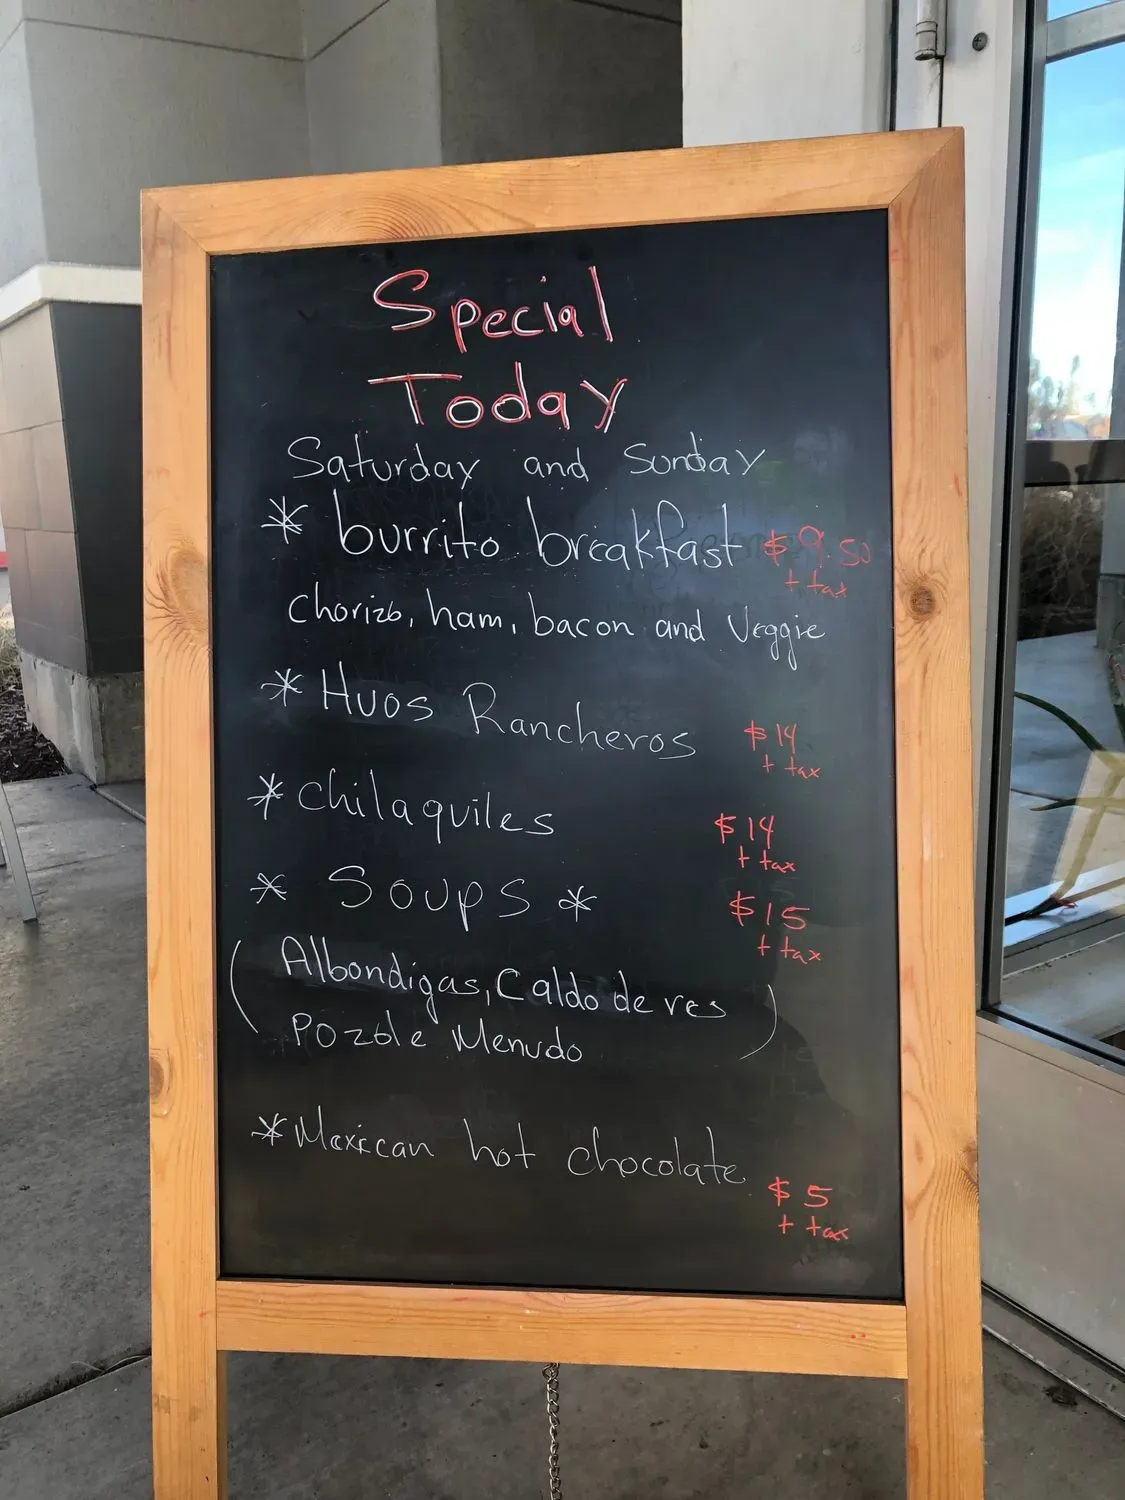 Special
Today
Saturday and Sunday
* burrito breakfast $9.50
+ tax
Chorizo, ham, bacon and Veggie
* Huos Rancheros $14
+ tax
* Chilaquiles $14
+ tax
* Soups * $15
+ tax
( Albondigas, Caldo de res
Pozole Menudo )
* Mexican hot chocolate
$5
+ tax